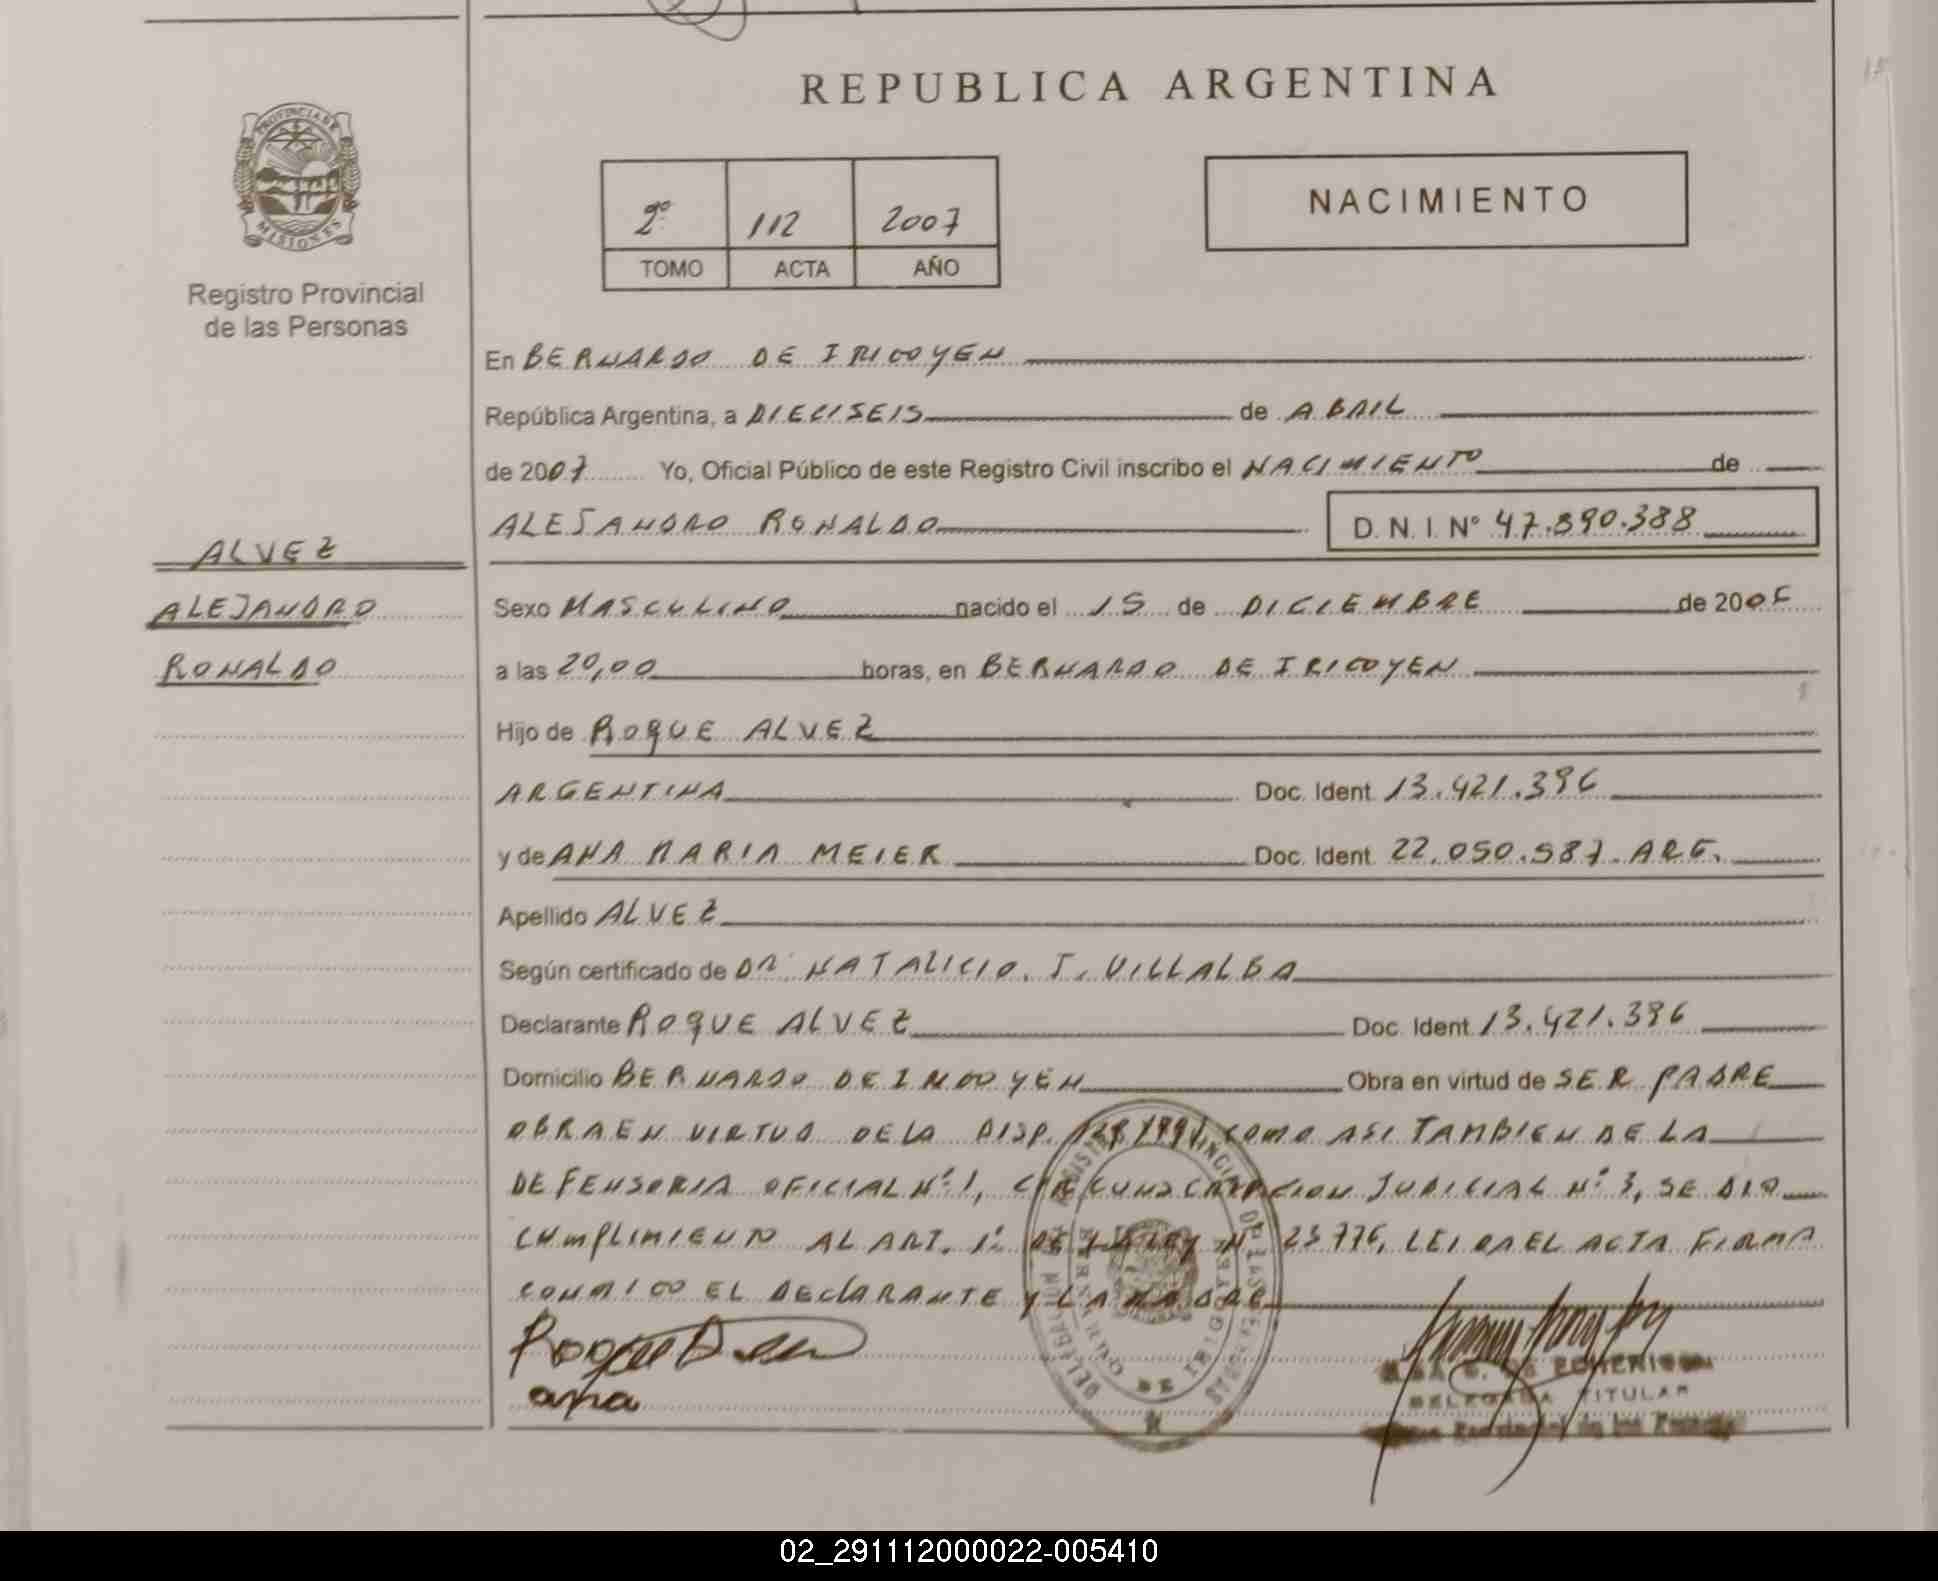 REPUBLICA ARGENTINA
PROVINCIA DE
MISIONES
Registro Provincial
de las Personas
2º 112 2007
TOMO ACTA AÑO
NACIMIENTO
En BERNARDO DE IRIGOYEN
República Argentina, a DIECISEIS de ABRIL
de 2007 Yo, Oficial Público de este Registro Civil inscribo el NACIMIENTO de
ALEJANDRO RONALDO D. N. I. Nº 47.890.388
ALVEZ
ALEJANDRO
RONALDO
Sexo MASCULINO nacido el 15 de DICIEMBRE de 2006
a las 20,00 horas, en BERNARDO DE IRIGOYEN
Hijo de ROQUE ALVEZ
ARGENTINA Doc. Ident. 13.421.396
y de ANA MARIA MEIER Doc. Ident. 22.050.587. ARG.
Apellido ALVEZ
Según certificado de DR. NATALICIO. J. VILLALBA
Declarante ROQUE ALVEZ Doc. Ident. 13.421.396
Domicilio BERNARDO DE IRIGOYEN Obra en virtud de SER PADRE
OBRA EN VIRTUD DE LA DISP. COMO ASI TAMBIEN DE LA
DEFENSORIA OFICIAL Nº 1, CIRCUNSCRIPCION JUDICIAL Nº 3, SE DIO
CUMPLIMIENTO AL ART. 1º DE LA LEY Nº 23776, LEIDA EL ACTA FIRMA
CONMIGO EL DECLARANTE Y LA MADRE
ana
DELEGADA TITULAR
02_291112000022-005410